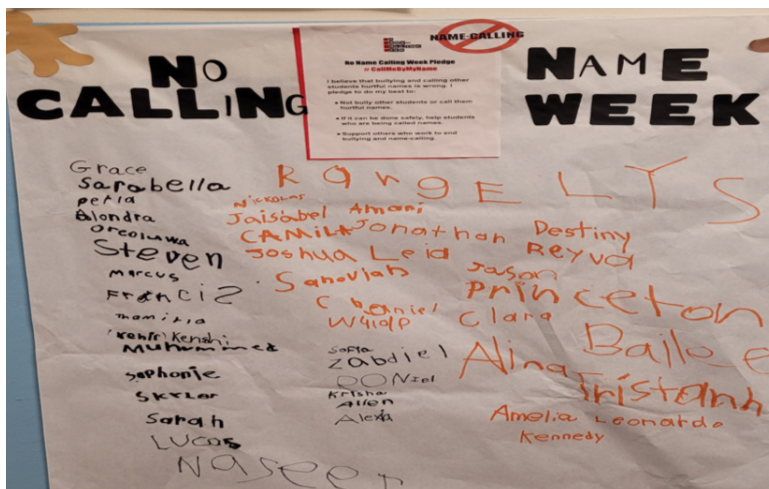 NO
CALLING
NAME
WEEK
NAME-CALLING
No Name Calling Week Pledge
# CallMeByMyName
I believe that bullying and calling other
students hurtful names is wrong. I
pledge to do my best to:
• Not bully other students or call them
hurtful names.
• If it can be done safely, help students
who are being called names.
• Support others who work to end
bullying and name-calling.
Grace
Sarabella
perla
Alondra
oreoluwa
Steven
marcus
Franciz
Kenshi
Muhammed
Saphonie
Skyler
Sarah
Lucas
Naseer
RangELYS
NICKOLAS
Jaisabel Amari
CAMILA Jonathan Destiny
Joshua Leid Reyva
Sanoviah Jason
Princeton
Daniel Clara
Sofia
Zabdiel
DONiel
Krisha
Allen
Alexia
Bailee
Alina
Tristanh
Amelia Leonardo
Kennedy